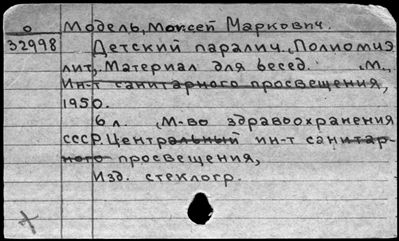 о Модель, Моисей Маркович.
32998 Детский паралич. (Полиомиэ
лит). Материал для бесед. М.,
Ин-т санитарного просвещения,
1950.
6 л. (М-во здравоохранения
СССР. Центральный ин-т санитар-
ного просвещения,
Изд. стеклогр.